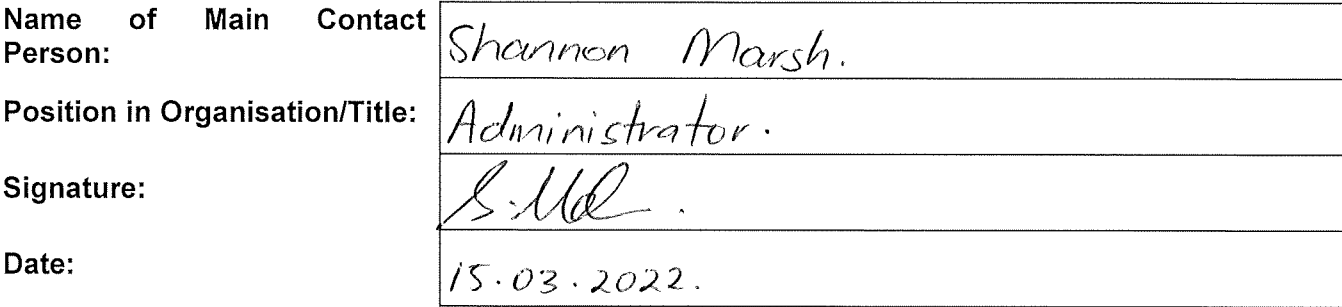 Name of Main Contact
Person:
Shannon Marsh.
Position in Organisation/Title:
Administrator.
Signature:
Date:
15.03.2022.